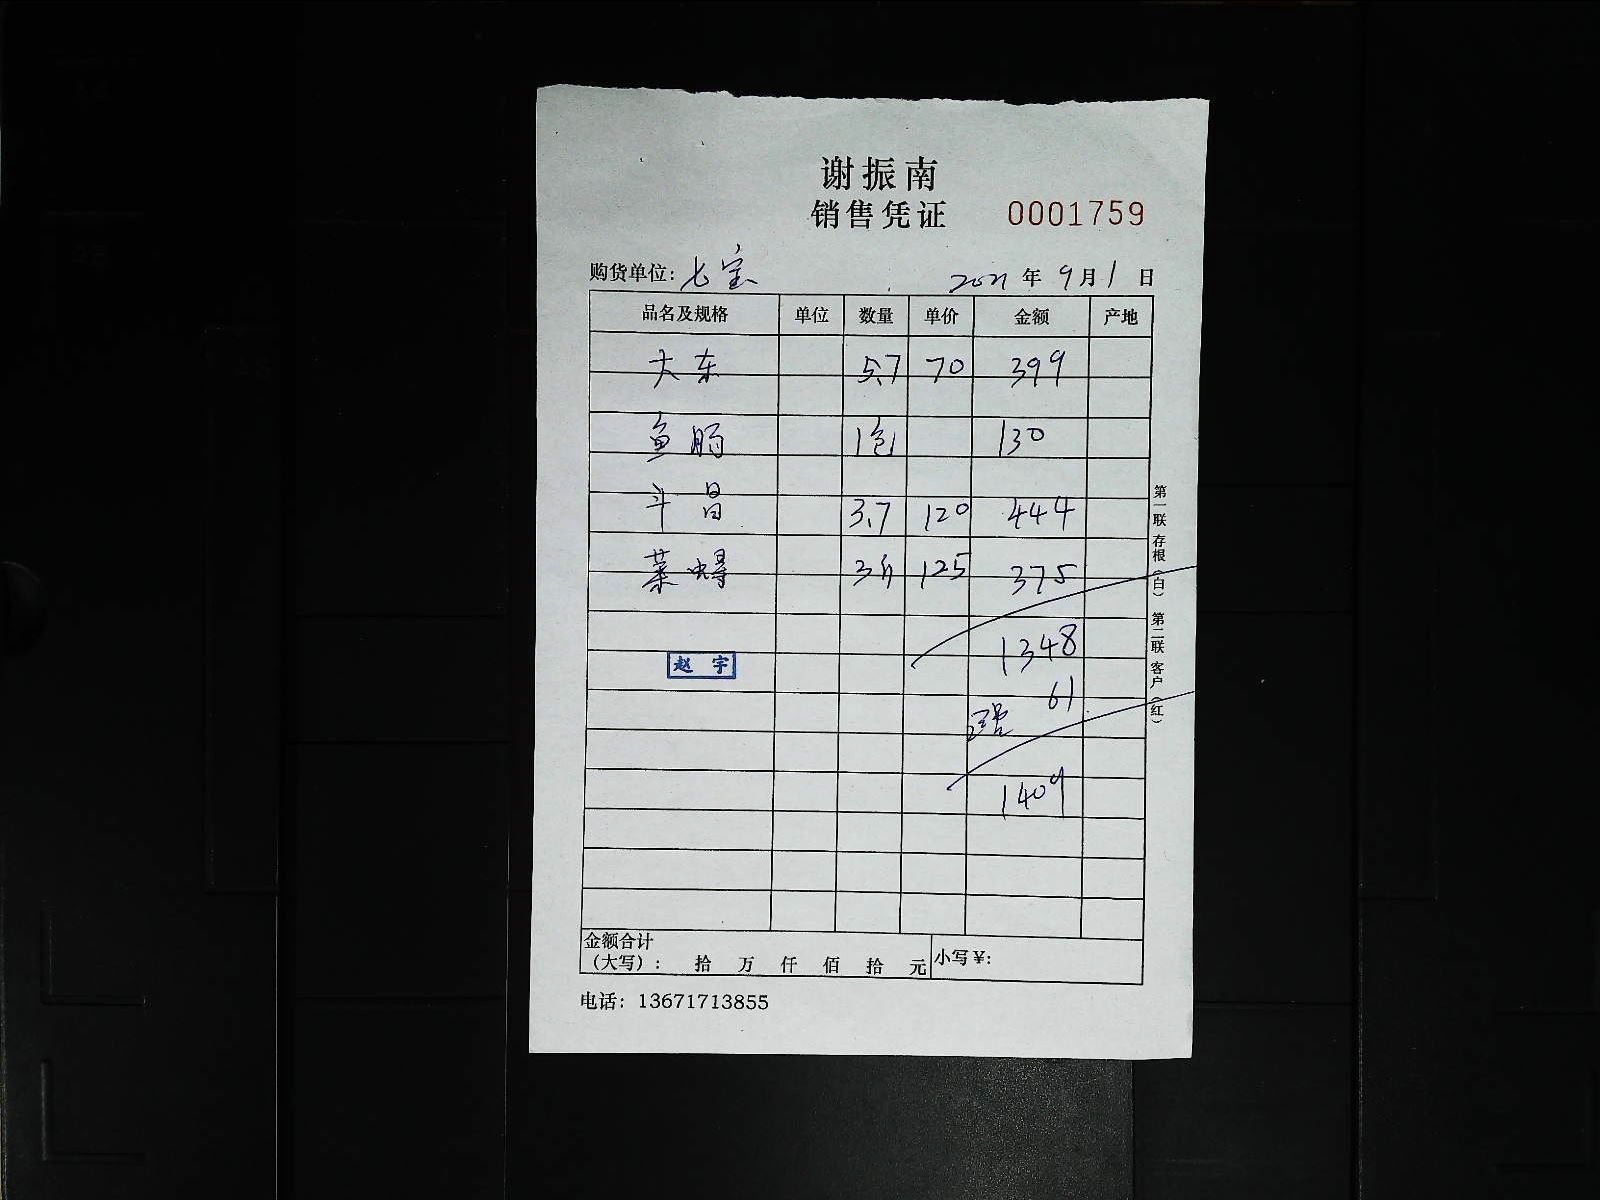 谢振南
销售凭证 0001759
购货单位: 七宝 2021 年 9 月 1 日
品名及规格 单位 数量 单价 金额 产地
大东 5.7 70 399
鱼肠 1包 130
斗昌 3.7 120 444
菜蟳 3斤 125 375
1348
赵宇
61
1409
第一联 存根（白） 第二联 客户（红）
金额合计
（大写）： 拾 万 仟 佰 拾 元 小写￥:
电话：13671713855